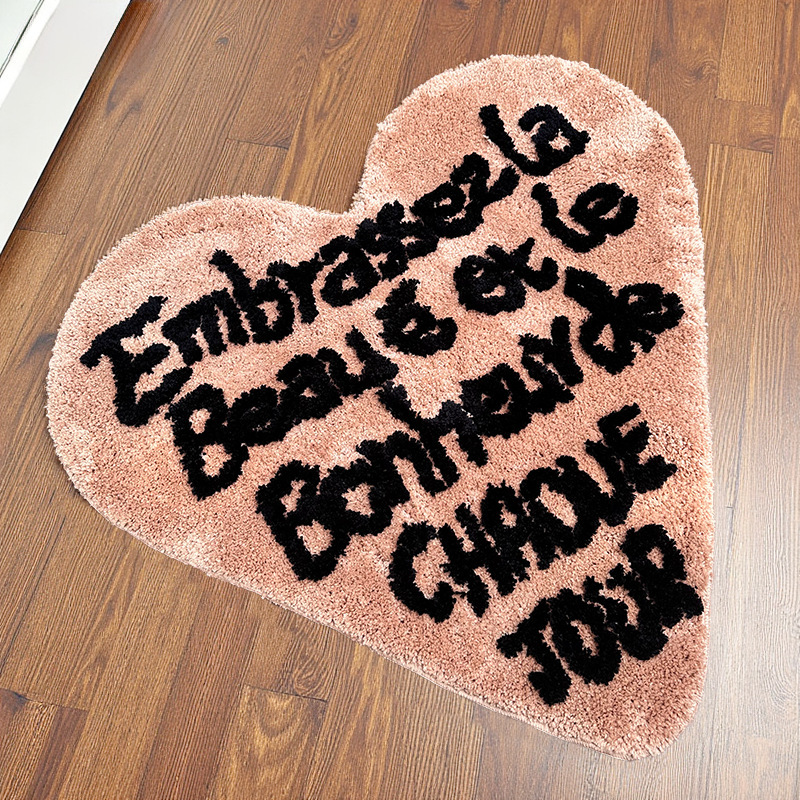 Embrassez la
Beauté et le
Bonheur de
CHAQUE
JOUR